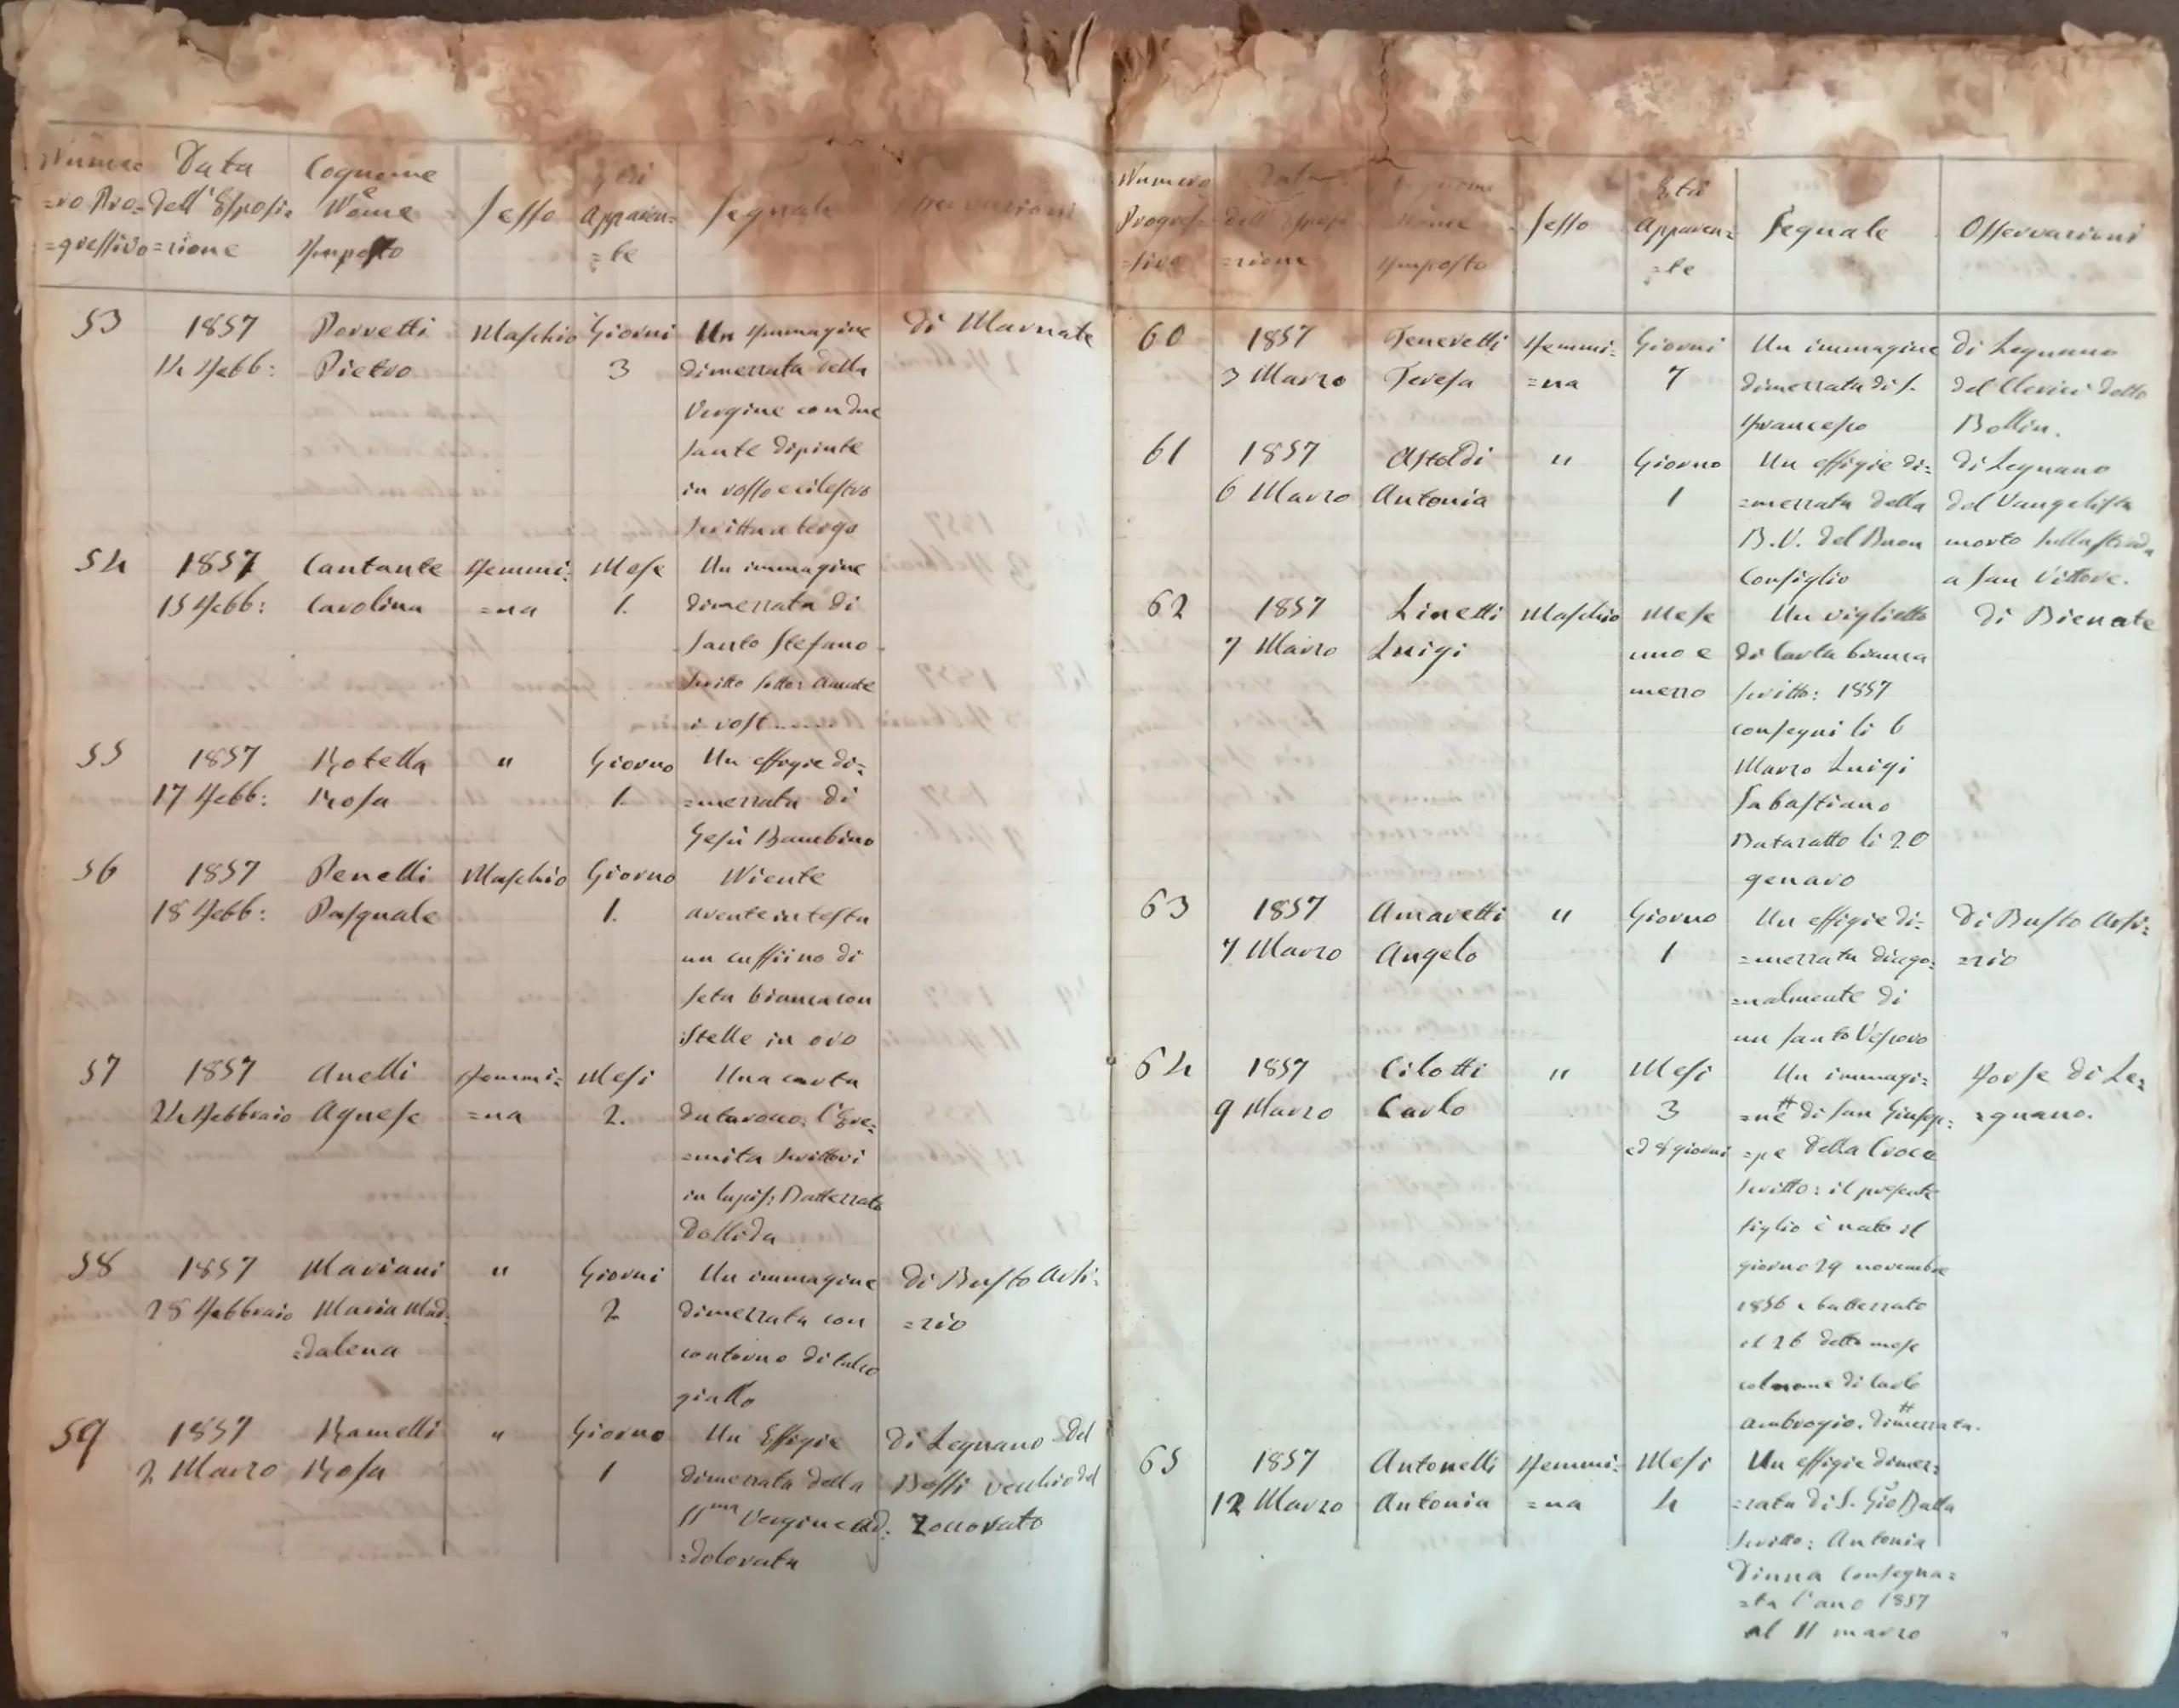 Nume=
=ro Pro=
=gressivo
Data
dell'Esposi=
=zione
Cognome
e
Nome
Imposto
Sesso
Età
Apparen=
=te
Segnale
Osservazioni
53
1857
14 Febb:
Porretti
Pietro
Maschio
Giorni
3
Un Immagine
dimezzata della
Vergine con due
sante dipinte
in rosso e cilestro
scritta a tergo
di Marnate
54
1857
15 Febb:
Cantante
Carolina
Femmi=
=na
Mese
1.
Un immagine
dimezzata di
Santo Stefano
scritto sotto: Amate
i vost......
55
1857
17 Febb:
Rotella
Rosa
"
Giorno
1.
Un effigie di=
=mezzata di
Gesù Bambino
56
1857
18 Febb:
Penelli
Pasquale
Maschio
Giorno
1.
Niente
avente in testa
un cuffiino di
seta bianca con
stelle in oro
57
1857
24 Febbraio
Anelli
Agnese
Femmi=
=na
Mesi
2.
Una carta
da tarocco: l'Ere=
=mita scrittovi
in lapis: Battezzata
Dallida
58
1857
28 Febbraio
Mariani
Maria Mad=
=dalena
"
Giorni
2
Un immagine
dimezzata con
contorno di talco
giallo
di Busto Arsi=
=zio
59
1857
2 Marzo
Ramelli
Rosa
"
Giorno
1
Un Effigie
dimezzata della
SSma Vergine Ad=
=dolorata
di Legnano del
Bossi vecchio del
Zoccorato
Numero
Progres=
=sivo
Data
dell'Esposi
=zione
Cognome
Nome
Imposto
Sesso
Età
Apparen=
=te
Segnale
Osservazioni
60
1857
3 Marzo
Teneretti
Teresa
Femmi=
=na
Giorni
7
Un immagine
dimezzata di S.
Francesco
di Legnano
del Clerici detto
Bollin.
61
1857
6 Marzo
Astoldi
Antonia
"
Giorno
1
Un effigie di=
=mezzata della
B.V. del Buon
Consiglio
di Legnano
del Vangelista
morto sulla strada
a San Vittore.
62
1857
7 Marzo
Linetti
Luigi
Maschio
Mese
uno e
mezzo
Un viglietto
di carta bianca
scritto: 1857
consegni li 6
Marzo Luigi
Sabastiano
Batazatto li 20
genaro
di Bienate
63
1857
7 Marzo
Amaretti
Angelo
"
Giorno
1
Un effigie di=
=mezzata diago=
=nalmente di
un santo Vescovo
di Busto Arsi=
=zio
64
1857
9 Marzo
Cilotti
Carlo
"
Mesi
3
ed 8 giorni
Un immagi=
=ne # di San Giusep=
=pe della Croce
scritto: il presente
figlio è nato il
giorno 29 novembre
1856 e battezzato
el 26 detto mese
col nome di Carlo
Ambrogio. # dimezzata.
Forse di Le=
=gnano.
65
1857
12 Marzo
Antonelli
Antonia
Femmi=
=na
Mesi
4
Un effigie dimez=
=zata di S. Gio Batta
scritto: Antonia
Dinna consegna=
=ta l'ano 1857
al 11 marzo